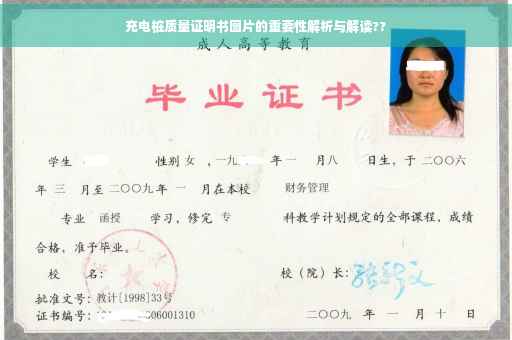 充电桩质量证明书图片的重要性解析与解读??
成人高等教育
毕业证书
学生 性别 女 ，一九 年 一 月八 日生，于 二〇〇六
年 三 月至 二〇〇九 年 一 月在本校 财务管理
专业 函授 学习，修完 专 科教学计划规定的全部课程，成绩
合格，准予毕业。
校 名： 校（院）长：
批准文号：教计[1998]33号
证书编号： 06001310 二〇〇九 年 一 月 十 日